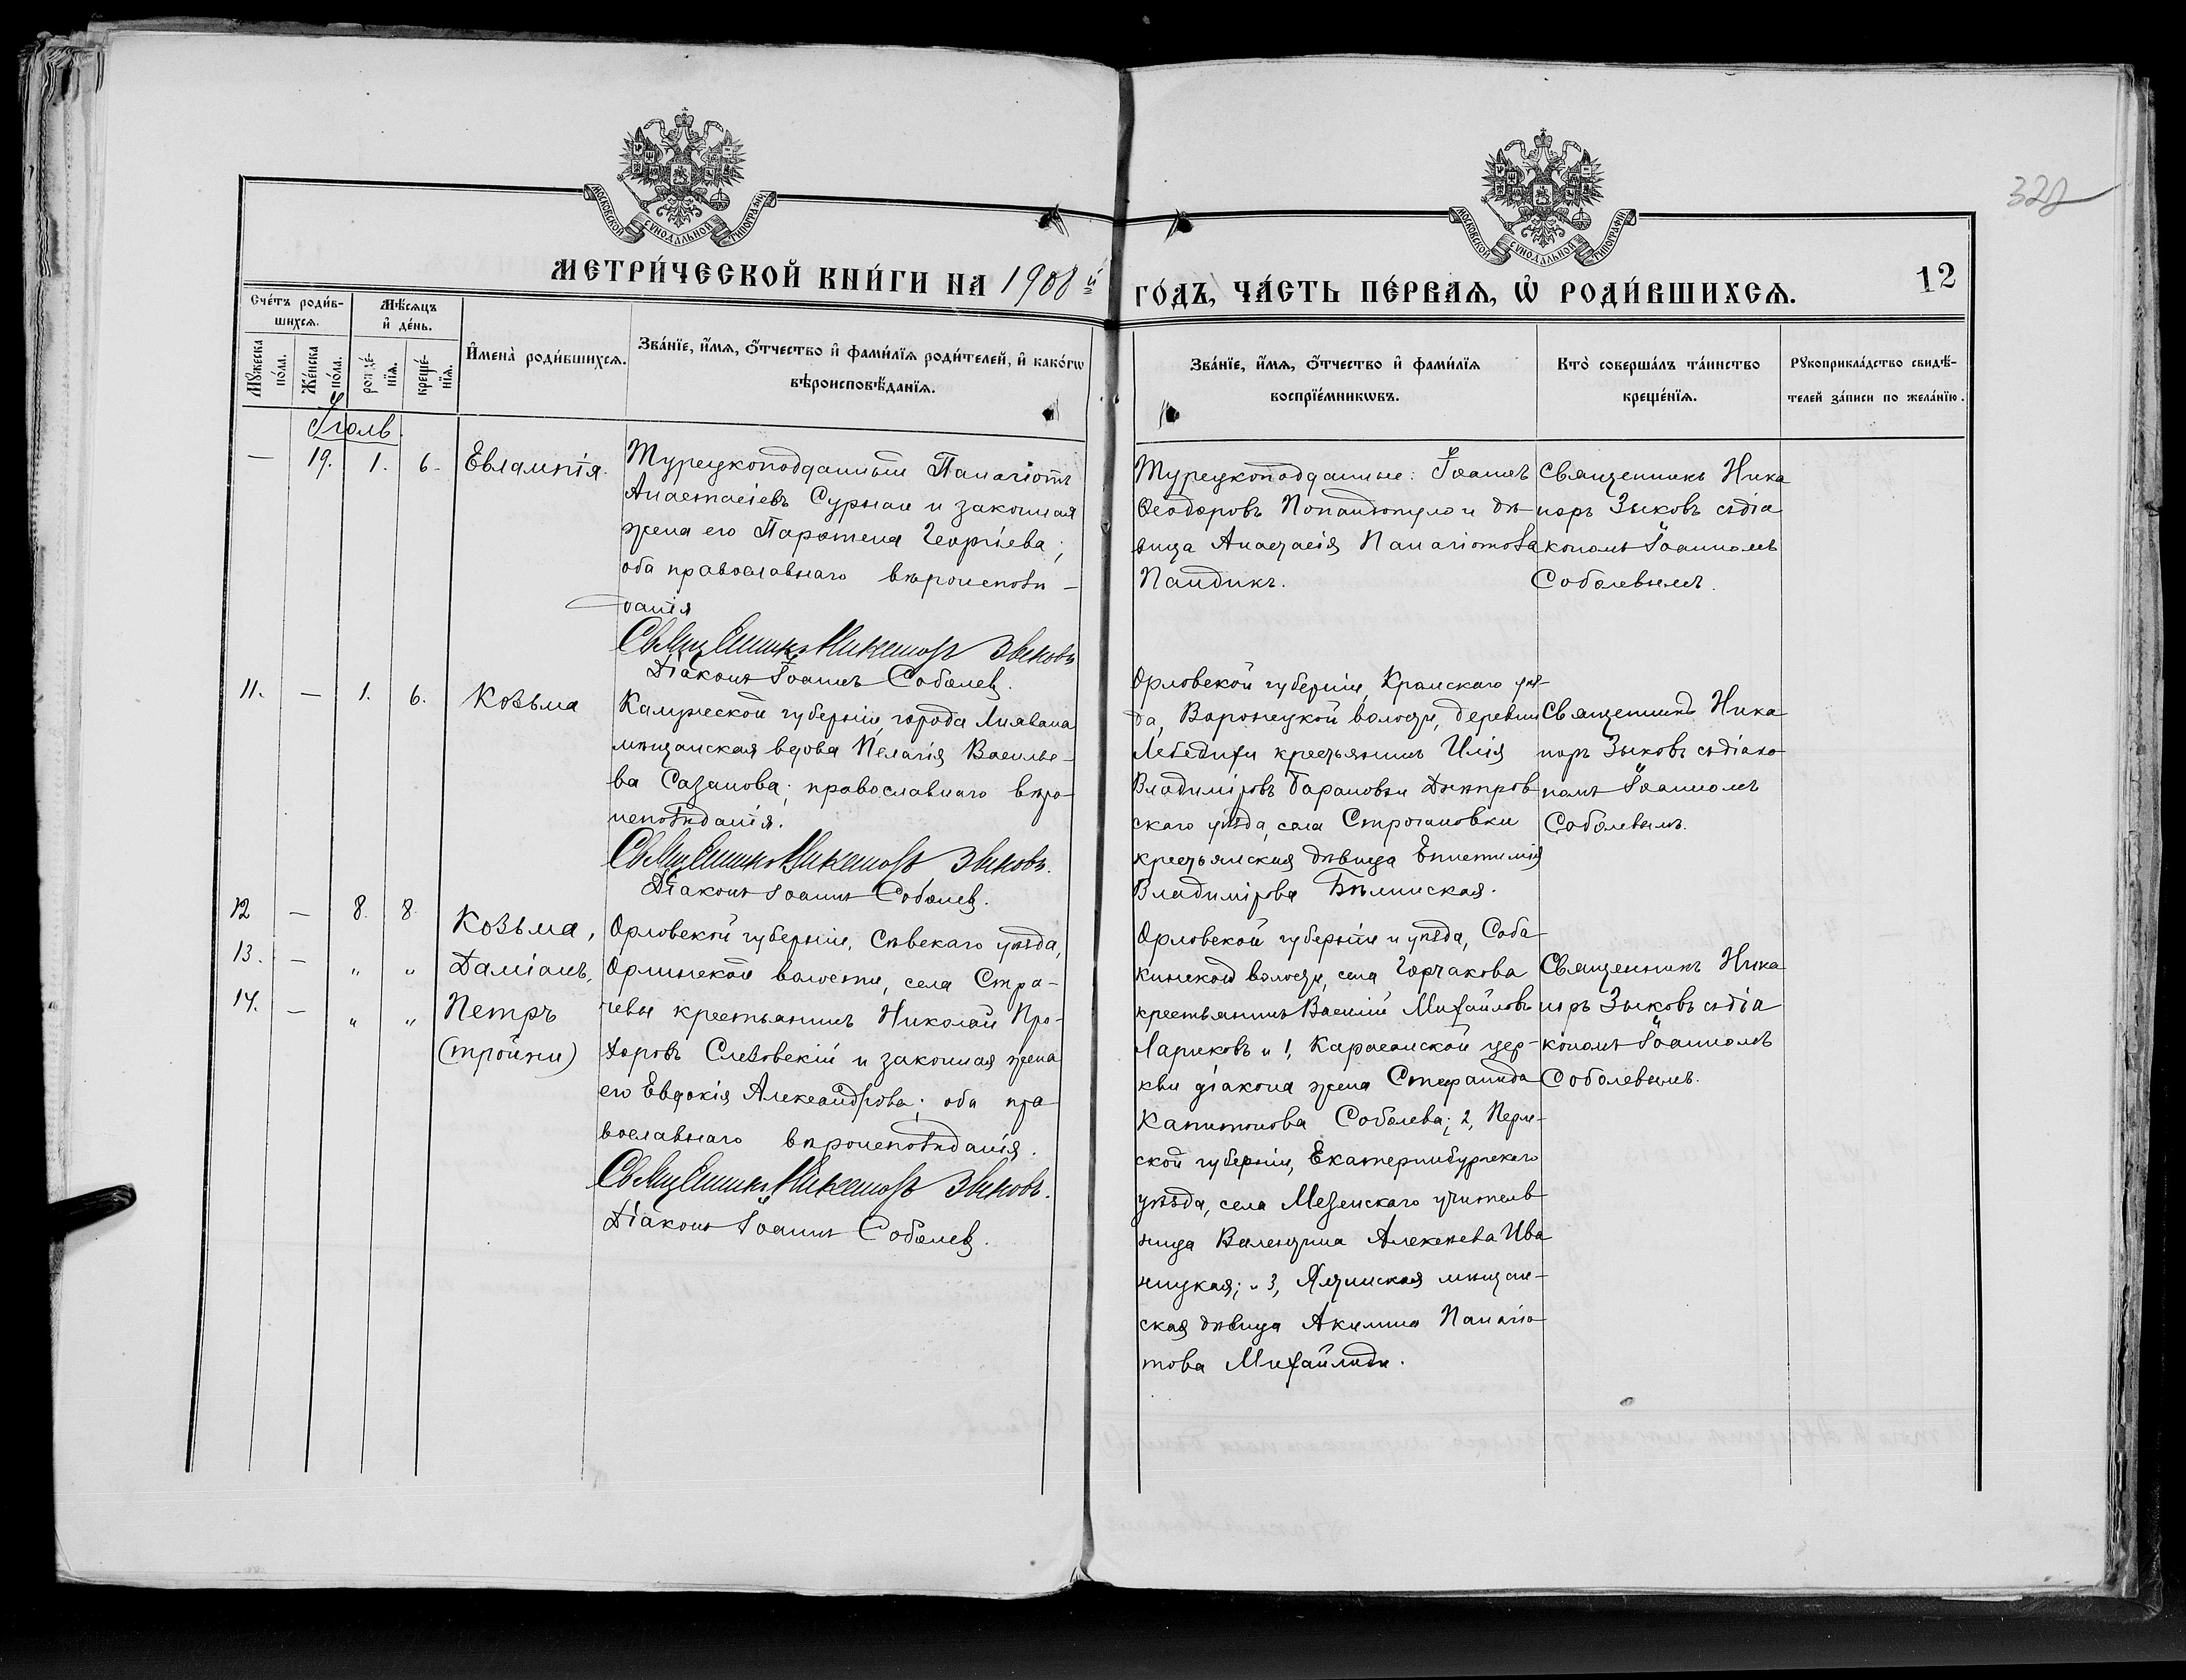 322
МОСКОВСКОЙ СѴНОДАЛЬНОЙ ТИПОГРАФІИ
МОСКОВСКОЙ СѴНОДАЛЬНОЙ ТИПОГРАФІИ
МЕТРИ́ЧЕСКОЙ КНИ́ГИ НА 1908 й
ГО́ДЪ, ЧА́СТЬ ПЕ́РВАѦ, Ѡ РОДИ́ВШИХСѦ.
12
Сче́тъ роди́в-
шихсѧ.
Мѣ́сѧцъ
и҆ де́нь.
Мꙋ́жеска по́ла.
Же́нска по́ла.
рожде́-нїѧ.
креще́-нїѧ.
И҆мена̀ роди́вшихсѧ.
Зва́нїе, и҆́мѧ, ѻ҆́тчество и҆ фами́лїѧ роди́телей, и҆ како́гѡ
вѣроисповѣ́данїѧ.
Зва́нїе, и҆́мѧ, ѻ҆́тчество и҆ фами́лїѧ
воспрїе́мникѡвъ.
Кто̀ соверша́лъ та́инство
креще́нїѧ.
Рꙋкоприкла́дство свидѣ́-
телей за́писи по жела́нїю.
Іюль.
— 19. 1. 6. Евлампія.
Турецкоподданный Панаіотъ
Анастасіевъ Сурнаи и законная
жена его Парѳена Георгіева;
оба православнаго вѣроисповѣ-
данія
Священникъ Никаноръ Зыковъ
Діаконъ Іоаннъ Соболевъ.
Турецкоподданные: Іоаннъ
Ѳеодоровъ Попандопуло и дѣ-
вица Анастасія Панаіотова
Пандикъ.
Священникъ Ника
норъ Зыковъ съ діа
кономъ Іоанномъ
Соболевымъ.
11. — 1. 6. Козьма
Калужской губерніи, города Лихвина
мѣщанская вдова Пелагія Василье-
ва Сазанова; православнаго вѣро-
исповѣданія.
Священникъ Никаноръ Зыковъ.
Діаконъ Іоаннъ Соболевъ.
Орловской губерніи, Кромскаго уѣз-
да, Воронецкой волости, деревни
Лебедихи крестьянинъ Илія
Владиміровъ Барановъ и Днѣпров
скаго уѣзда, села Строгановки
крестьянская дѣвица Епистимія
Владимірова Бѣлинская.
Священникъ Ника
норъ Зыковъ съ діако
номъ Іоанномъ
Соболевымъ.
12 — 8. 8. Козьма,
13. — " " Даміанъ,
14. — " " Петръ
(тройни)
Орловской губерніи, Сѣвскаго уѣзда,
Орлинской волости, села Стра-
чевы крестьянинъ Николай Про-
хоровъ Слезовскій и законная жена
его Евдокія Александрова; оба пра-
вославнаго вѣроисповѣданія.
Священникъ Никаноръ Зыковъ.
Діаконъ Іоаннъ Соболевъ.
Орловской губерніи и уѣзда, Соба
кинской волости, села Горчакова
крестьянинъ Василій Михайловъ
Лариковъ и 1, Карасанской цер-
кви діакона жена Стефанида
Капитонова Соболева; 2, Перм-
ской губерніи, Екатеринбургскаго
уѣзда, села Мезенскаго учитель
ница Валентина Алексѣева Ива
ницкая; и 3, Ялтинская мѣщан-
ская дѣвица Акилина Панаіо
това Михайлиди.
Священникъ Ника
норъ Зыковъ съ діа
кономъ Іоанномъ
Соболевымъ.